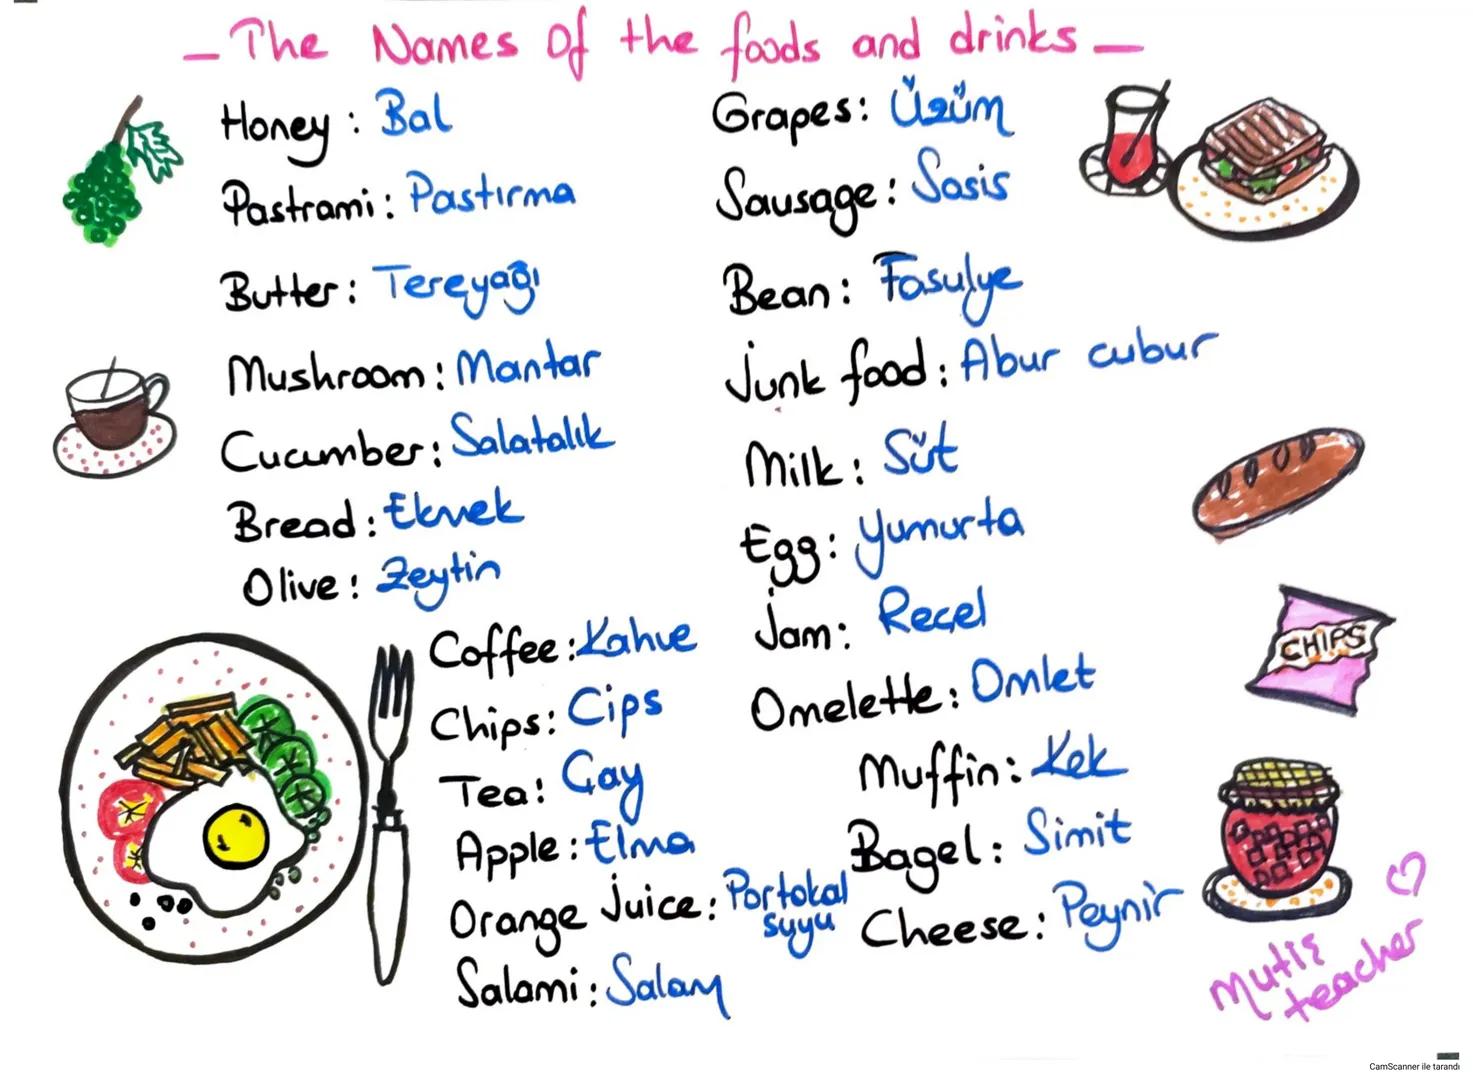 _ The Names Of the foods and drinks _
Honey : Bal
Pastrami : Pastırma
Butter : Tereyağı
Mushroom : Mantar
Cucumber : Salatalık
Bread : Ekmek
Olive : Zeytin
Coffee : Kahve
Chips : Cips
Tea : Çay
Apple : Elma
Orange Juice : Portokal
suyu
Salami : Salam
Grapes : Üzüm
Sausage : Sosis
Bean : Fasulye
Junk food : Abur cubur
Milk : Süt
Egg : Yumurta
Jam : Reçel
Omelette : Omlet
Muffin : Kek
Bagel : Simit
Cheese : Peynir
CHIPS
teacher
CamScanner ile tarandı